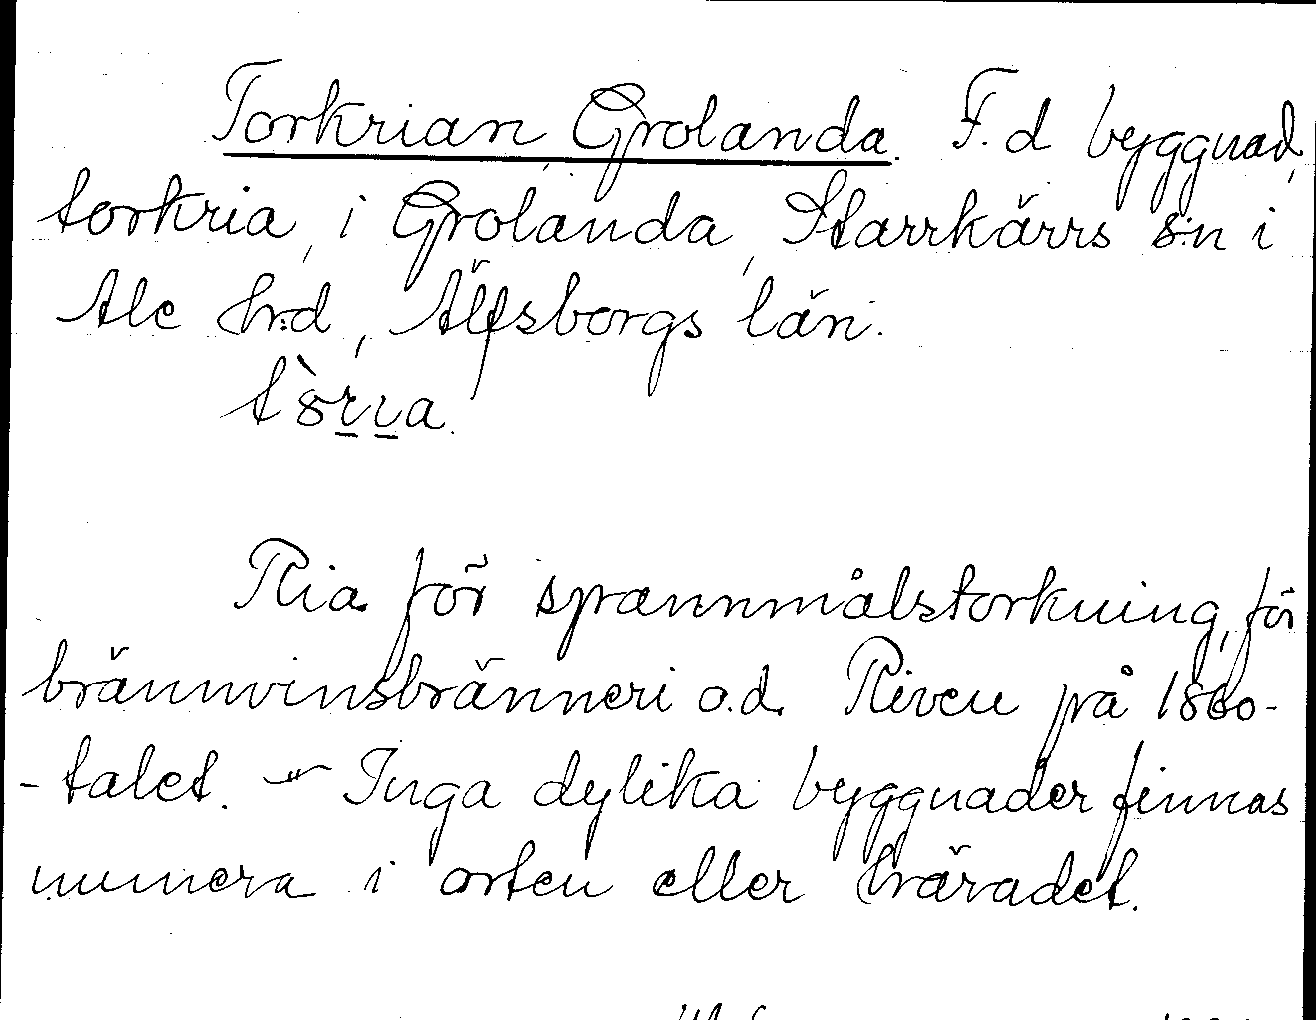 Torkrian, Grolanda. F.d byggnad,
torkria, i Grolanda, Starrkärrs s:n i
Ale hr:d, Älfsborgs län.
Ria för spannmålstorkning, för
brännvinsbränneri o.d. Riven på 1860-
-talet. — Inga dylika byggnader finnas
numera i orten eller häradet.